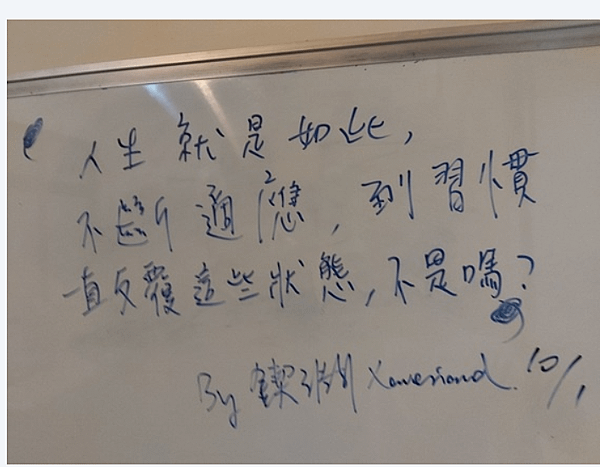 人生就是如此,
不斷適應,到習慣
一直反覆這些狀態,不是嗎?
By 鍥 10/1